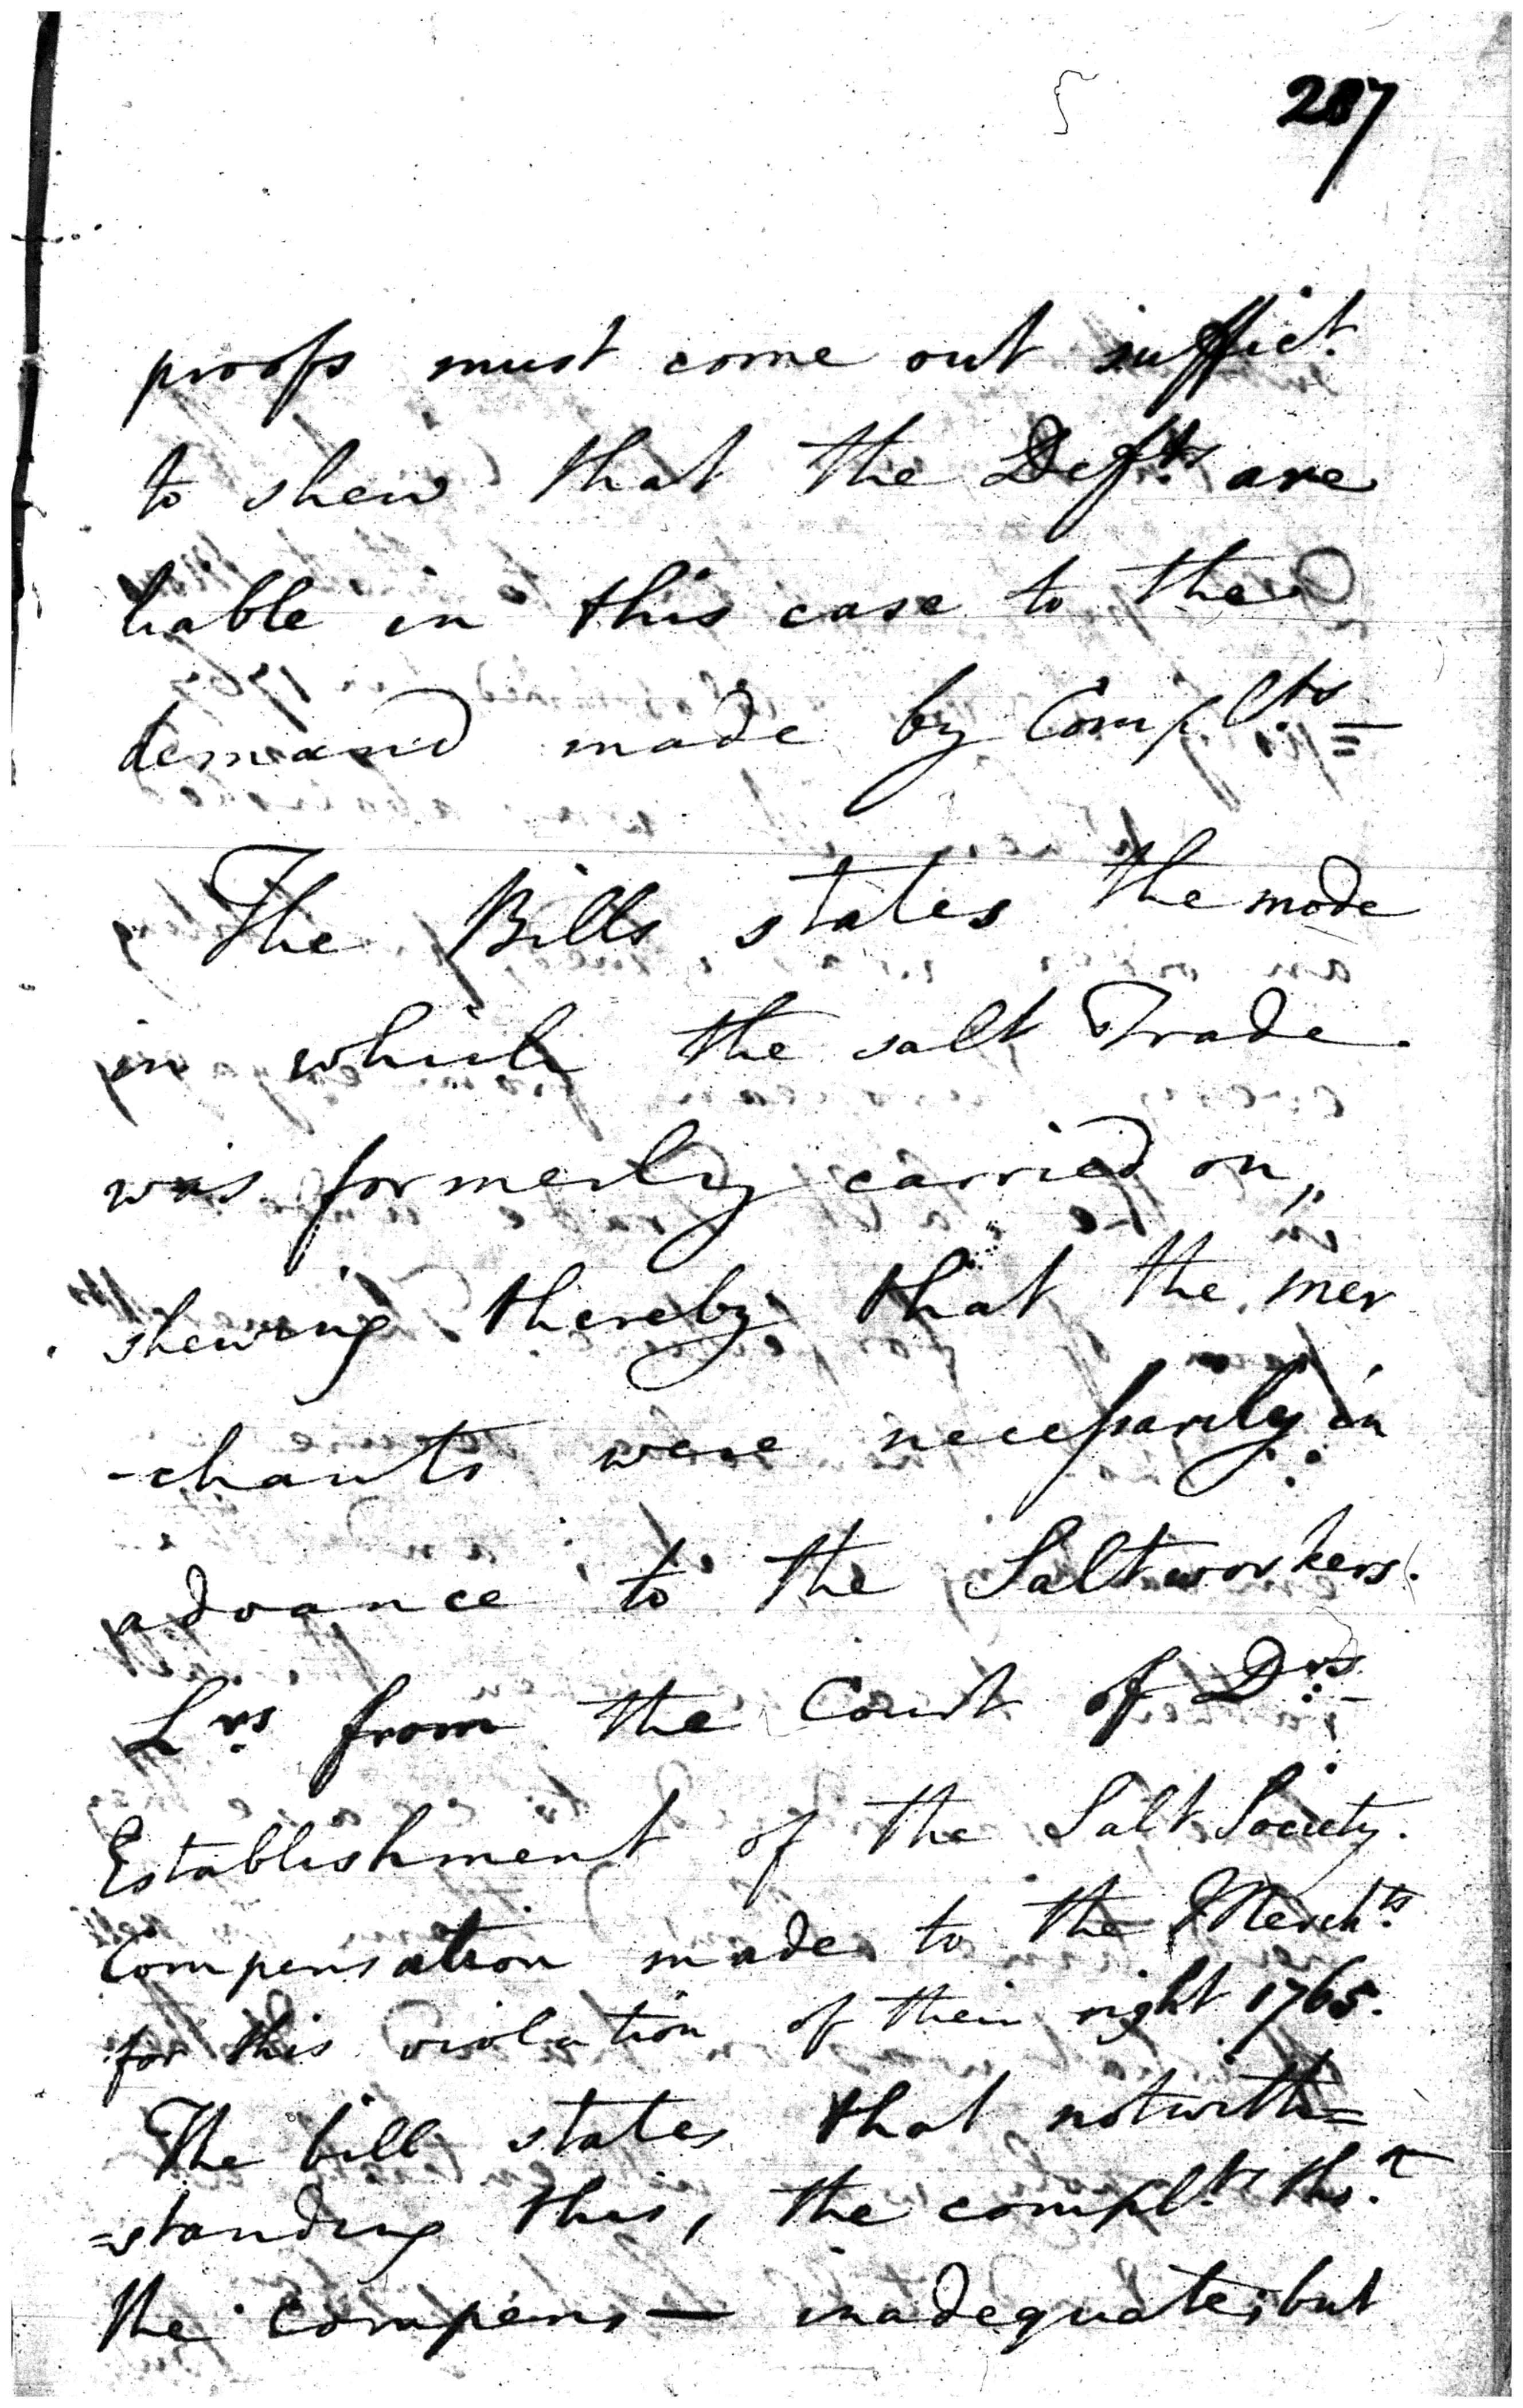 287
proofs must come out suffict.
to shew that the Defts. are
liable in this case to the
demand made by Complts. =
The Bills states the mode
in which the salt Trade.
was formerly carried on,,
shewing thereby that the mer
-chants were necessarily in
advance to the Saltworkers.
Lrs. from the Court of Drs.
Establishment of the Salt Society.
Compensation made to the Mercht.s
for this violation of their right 1765.
The bill states that notwith=
=standing this, the complts. tho.t
the compens— inadequate; but